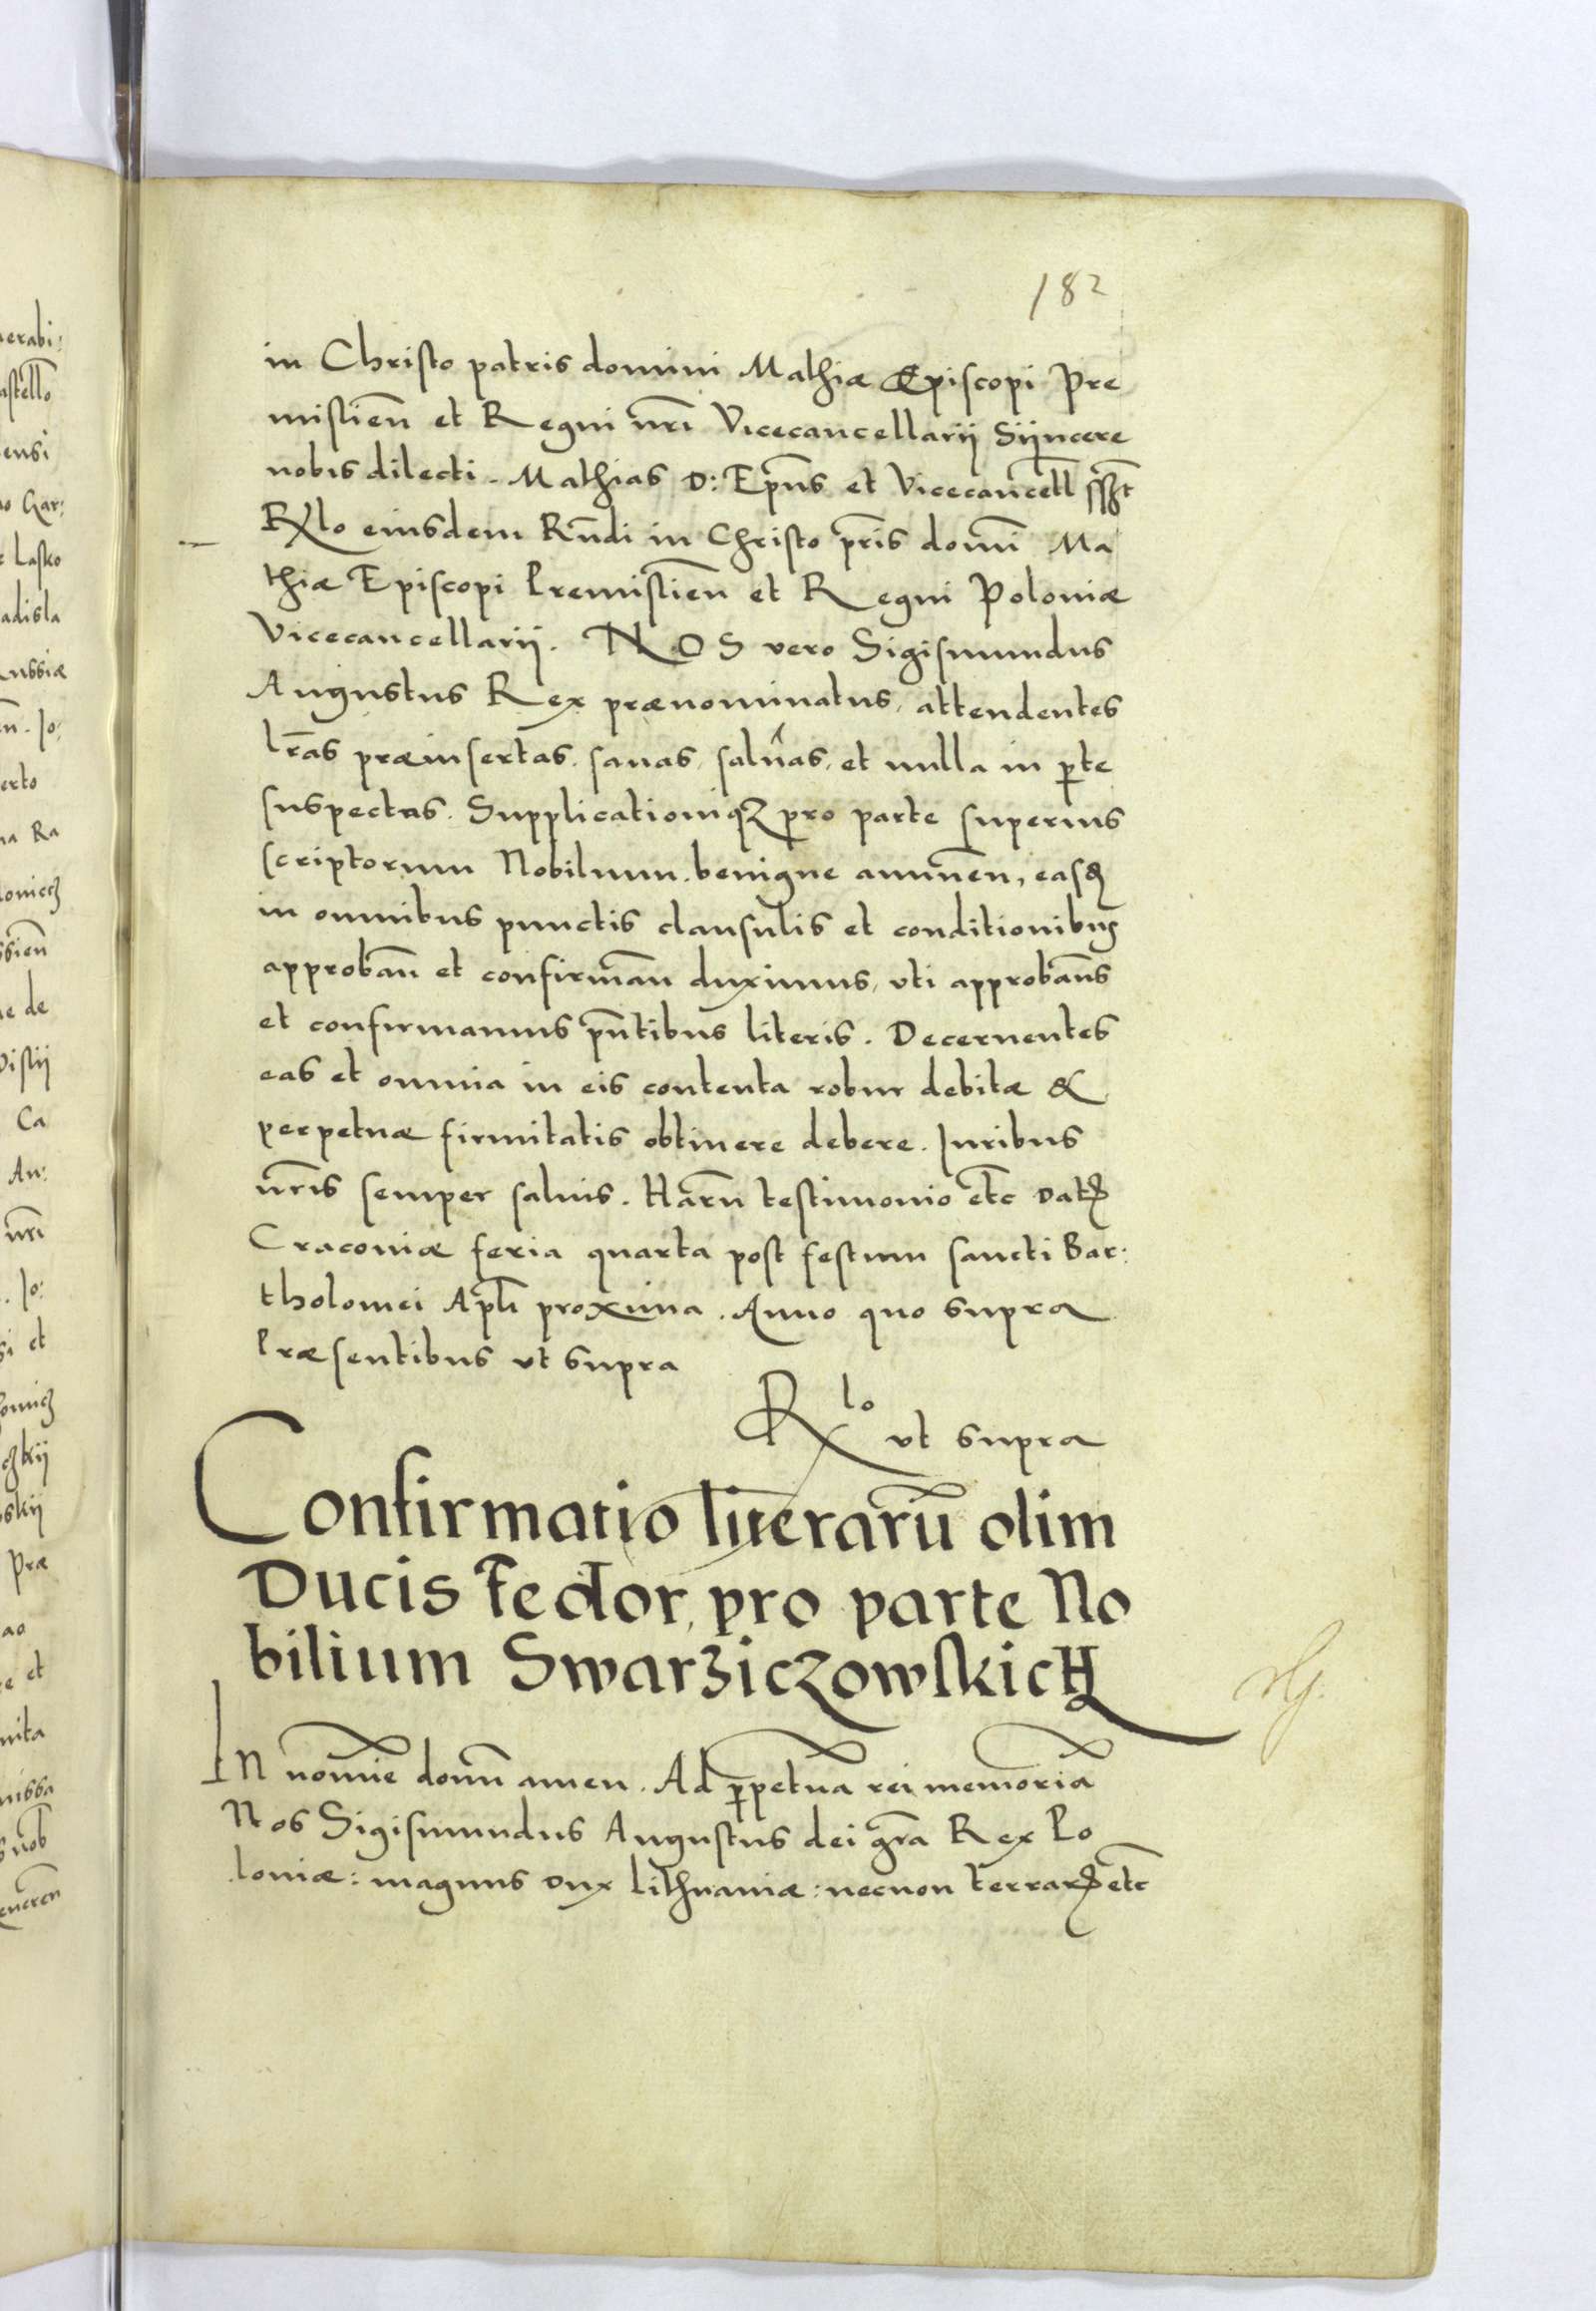 182
in Christo patris domini Mathiæ Episcopi Pre
mislien̄ et Regni nr̄i Vicecancellarij Sijncere
nobis dilecti. Mathias D: Ep̄ns et Vicecancell̄ sszt̄
Rx̄lo eiusdem Rn̄di in Christo pr̄is domī Ma
thiæ Episcopi Premislien̄ et Regni Poloniæ
Vicecancellarij. NOS vero Sigismundus
Augustus Rex prænominatus, attendentes
lr̄as præinsertas. sanas, saluas, et nulla in ꝑte
suspectas. Supplicationiqꝫ pro parte superius
scriptorum Nobilium. benigne annuen̄, easq́ꝫ
in omnibus punctis clausulis et conditionibus
approban̄ et confirman̄ duximus, vti approbam̄s
et confirmamus pn̄tibus literis. Decernentes
eas et omnia in eis contenta robur debitæ &
perpetuæ firmitatis obtinere debere. Iuribus
nr̄is semper saluis. Harū testimonio etc̄ Datꝫ
Cracouiæ feria quarta post festum sancti Bar:
tholomei Apl̄i proxima. Anno quo supra
Præsentibus vt supra
Rx̄lo vt supra
Confirmatio literarū olim
Ducis Fedor, pro parte No
bilium Swarziczowskich
In nomīe domī amen. Ad ꝑpetuā rei memoriā
Nos Sigismundus Augustus dei gr̄a Rex Po
loniæ: magnus Dux Lithuaniæ: necnon terrarꝝ etc̄